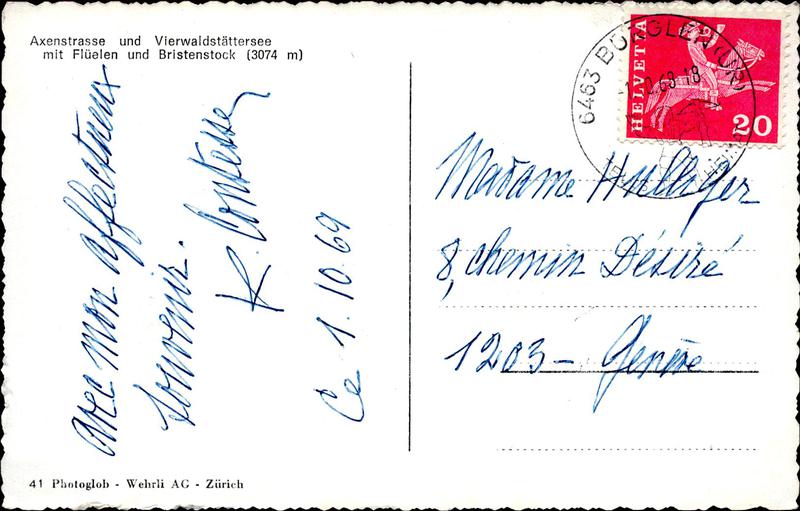 Axenstrasse und Vierwaldstättersee
mit Flüelen und Bristenstock (3074 m)
Avec mon affectueux
souvenir.
K. Contesse
Ce 1.10.69
41 Photoglob - Wehrli AG - Zürich
6463 BÜRGLEN (UR)
HELVETIA
20
Madame
8, chemin Désiré
1203 - Genève